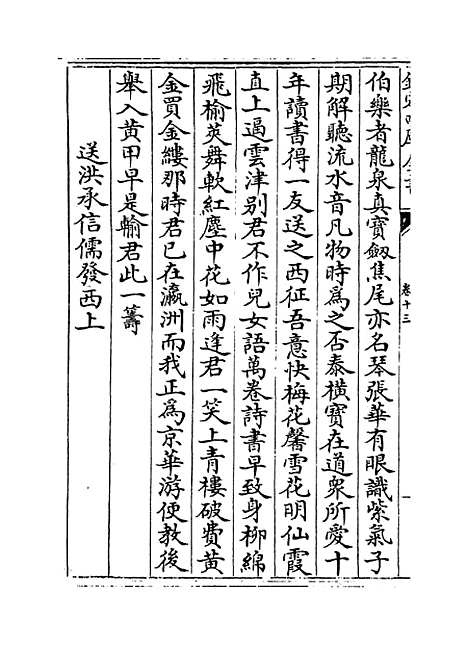 欽定四庫全書
卷十三
伯樂者龍泉真寶劔焦尾亦名琴張華有眼識紫氣子
期解聽流水音凡物時為之否泰橫寶在道衆所愛十
年讀書得一友送之西征吾意快梅花馨雪花明仙霞
直上逼雲津别君不作兒女語萬卷詩書早致身柳綿
飛榆莢舞軟紅塵中花如雨逢君一笑上青樓破費黄
金買金縷那時君已在瀛洲而我正為京華游便教後
舉入黄甲早是輸君此一籌
送洪承信儒發西上